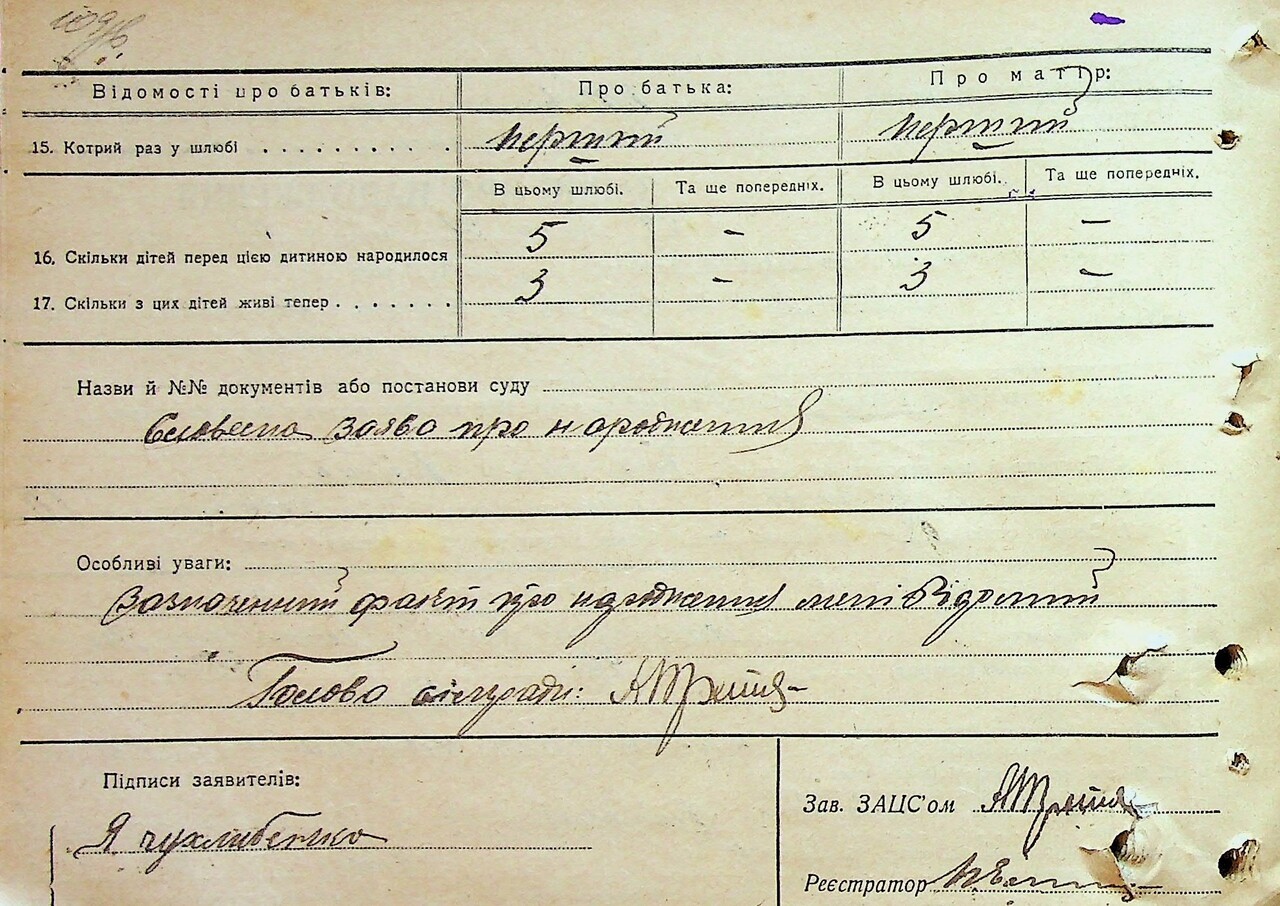 Відомості про батьків: Про батька: Про матір:
15. Котрий раз у шлюбі . . . . . . . . . . . перший перший
В цьому шлюбі. Та ще попередніх. В цьому шлюбі. Та ще попередніх.
16. Скільки дітей перед цією дитиною народилося 5 - 5 -
17. Скільки з цих дітей живі тепер . . . . . . . 3 - 3 -
Назви й №№ документів або постанови суду
Словесна заява про народження
Особливі уваги:
Зазначений факт про народження мені відомий
Голова сільради:
Підписи заявителів:
Зав. ЗАЦС'ом
Я Чухлибенко
Реєстратор